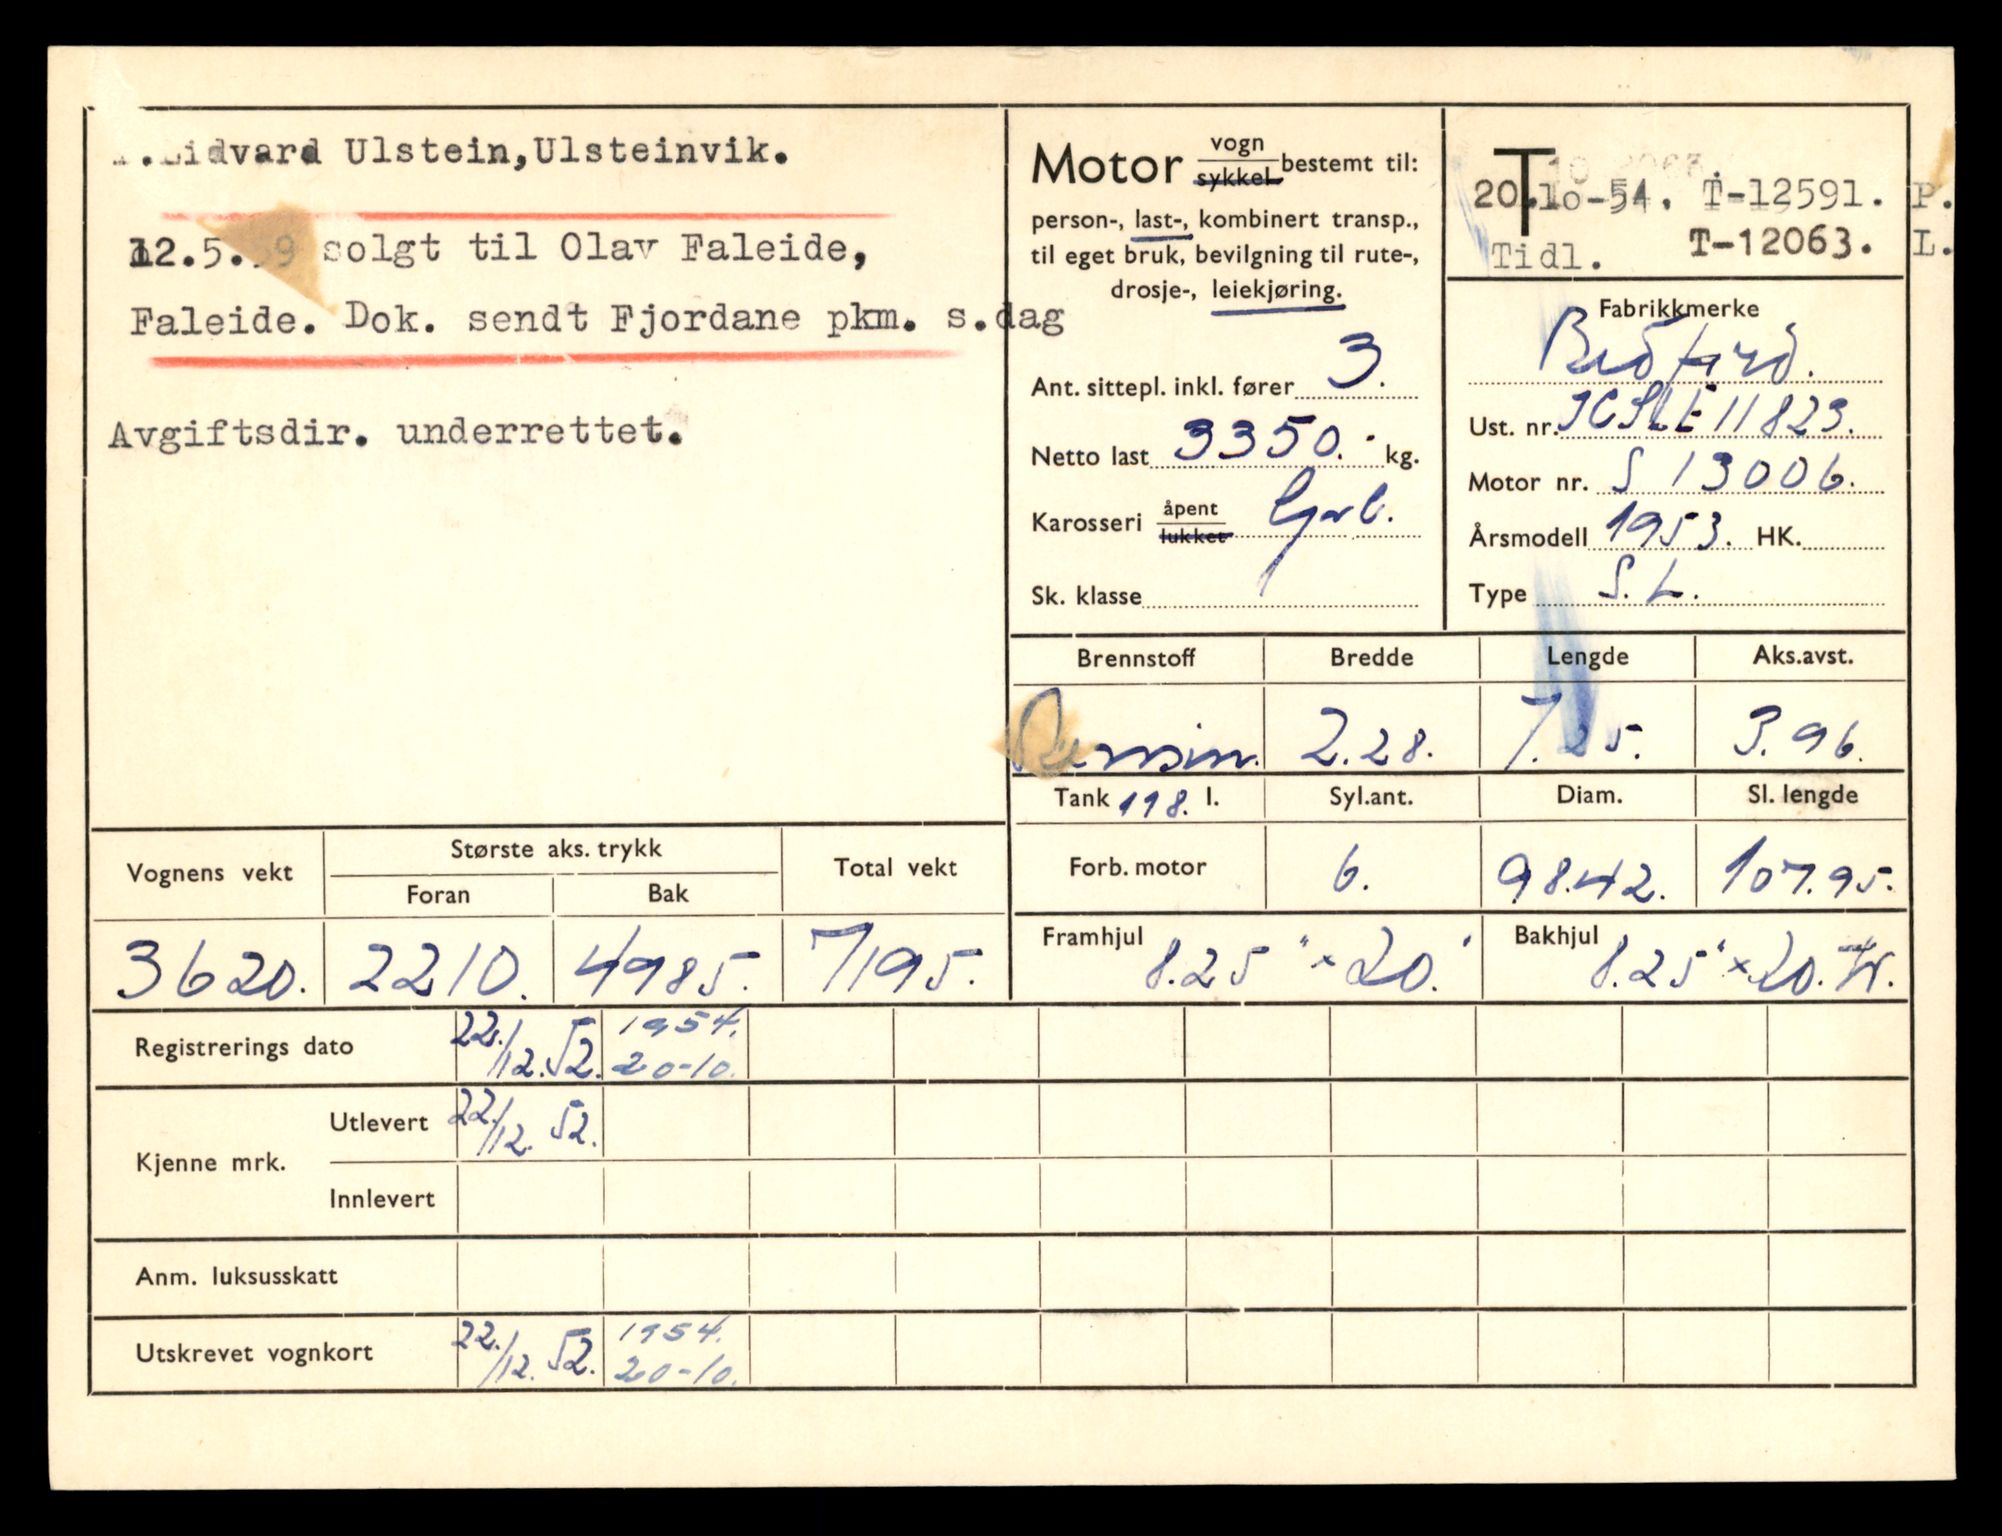 Lidvard Ulstein,Ulsteinvik.
12.5.59 solgt til Olav Faleide,
Faleide. Dok. sendt Fjordane pkm. s.dag
Avgiftsdir. underrettet.
Motor vogn sykkel bestemt til:
person-, last-, kombinert transp.,
til eget bruk, bevilgning til rute-,
drosje-, leiekjøring.
Ant. sittepl. inkl. fører 3.
Netto last 3350.- kg.
Karosseri åpent lukket
Sk. klasse
T
20.10-54. T-12591. P.
Tidl. T-12063. L.
Fabrikkmerke
Bedford.
Ust. nr. JCSLE 11823.
Motor nr. S 13006.
Årsmodell 1953. HK.
Type S.L.
Brennstoff Bredde Lengde Aks.avst.
Bensin. 2.28. 7.25. 3.96.
Tank 118. l. Syl.ant. Diam. Sl. lengde
Forb. motor 6. 98.42. 107.95.
Framhjul 8.25" × 20." Bakhjul 8.25" × 20.
Vognens vekt Største aks. trykk Total vekt
Foran Bak
3620. 2210. 4985. 7195.
Registrerings dato 22./12.52. 1954. 20-10.
Kjenne mrk.
Utlevert 22./12. 52.
Innlevert
Anm. luksusskatt
Utskrevet vognkort 22./12. 52. 1954. 20-10.